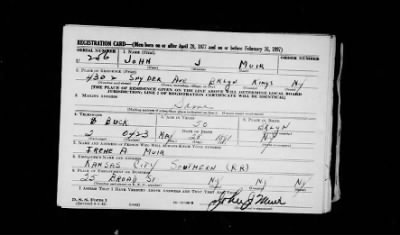 REGISTRATION CARD—(Men born on or after April 28, 1877 and on or before February 16, 1897)
SERIAL NUMBER 1. NAME (Print) ORDER NUMBER
U 256 JOHN J MUIR
2. PLACE OF RESIDENCE (Print)
4302 SNYDER AVE BKLYN KINGS NY
[THE PLACE OF RESIDENCE GIVEN ON THE LINE ABOVE WILL DETERMINE LOCAL BOARD
JURISDICTION; LINE 2 OF REGISTRATION CERTIFICATE WILL BE IDENTICAL]
3. MAILING ADDRESS
Same
4. TELEPHONE 5. AGE IN YEARS 6. PLACE OF BIRTH
BUCK 50 BKLYN
2 0423 MAY NY
7. NAME AND ADDRESS OF PERSON WHO WILL ALWAYS KNOW YOUR ADDRESS
IRENE A MUIR
8. EMPLOYER'S NAME AND ADDRESS
KANSAS CITY SOUTHERN (RR)
9. PLACE OF EMPLOYMENT OR BUSINESS
25 BROAD ST NY NY
I AFFIRM THAT I HAVE VERIFIED ABOVE ANSWERS AND THAT THEY ARE TRUE.
D. S. S. Form 1
John J Muir